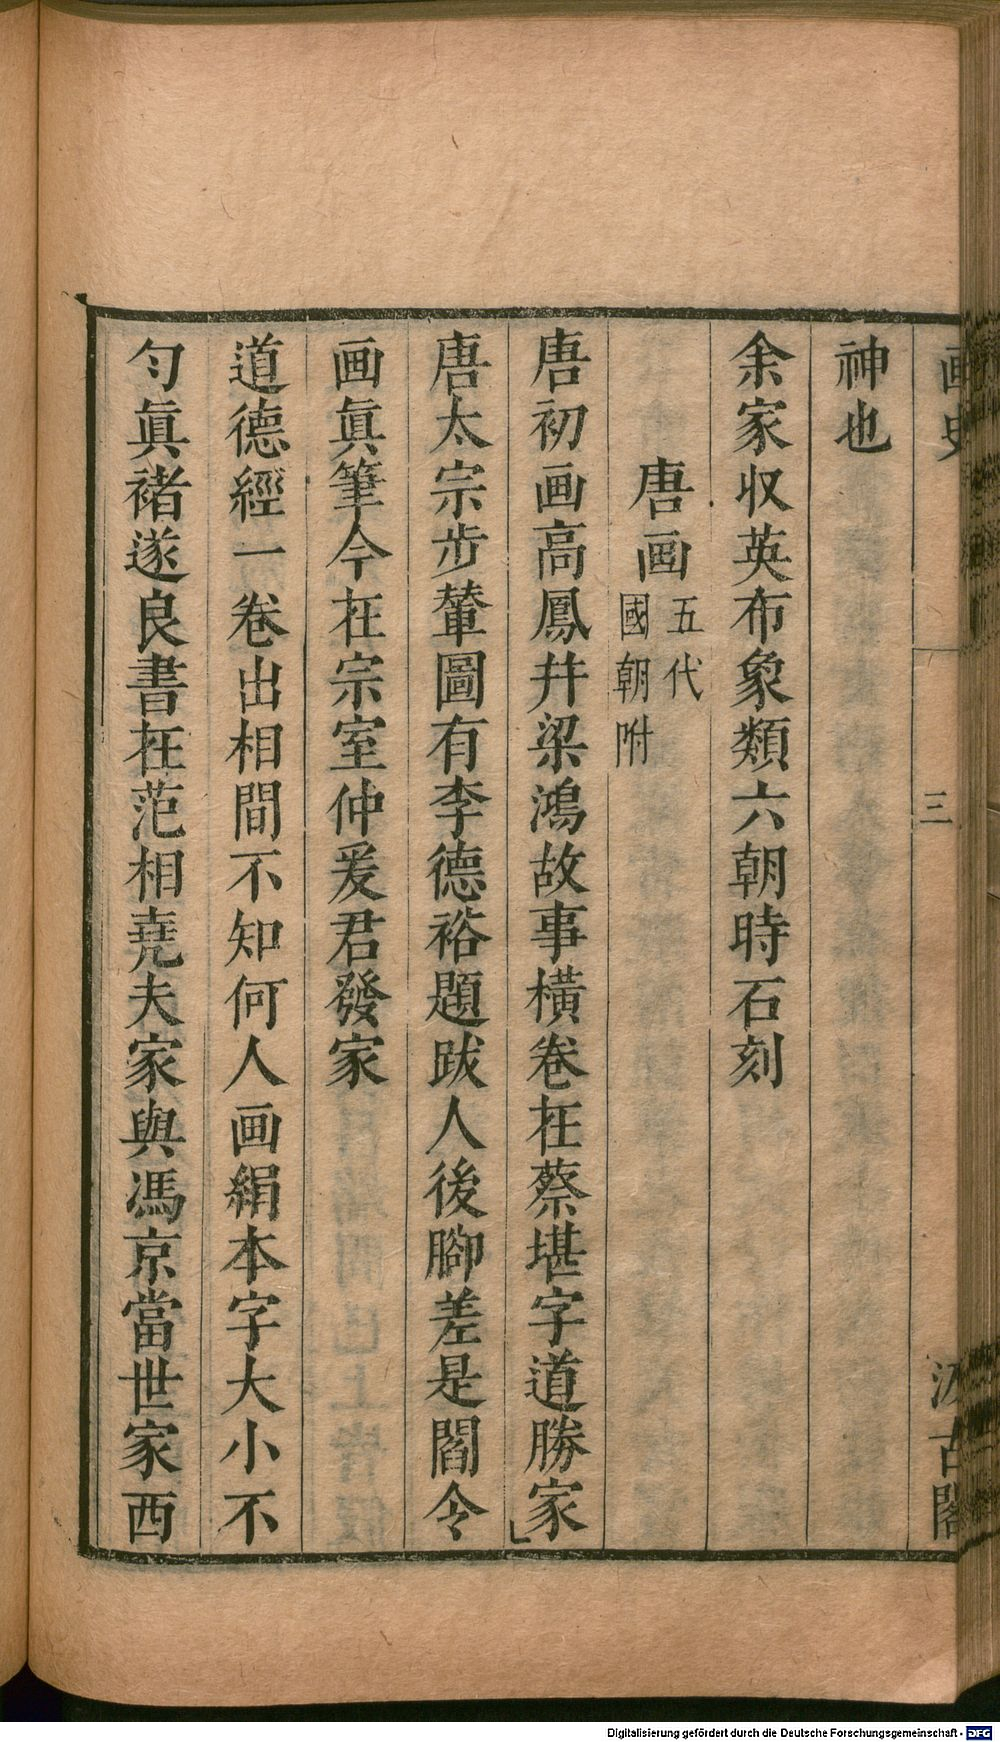 画史
三
汲古閣
神也
余家収英布象類六朝時石刻
唐画五代
國朝附
唐初画高鳳井梁鴻故事横卷在蔡堪字道勝家
唐太宗步輦圖有李德裕題跋人後腳差是閻令
画眞筆今在宗室仲爰君發家
道德經一卷出相間不知何人画絹本字大小不
勻眞褚遂良書在范相堯夫家與馮京當世家西
Digitalisierung gefördert durch die Deutsche Forschungsgemeinschaft - DFG